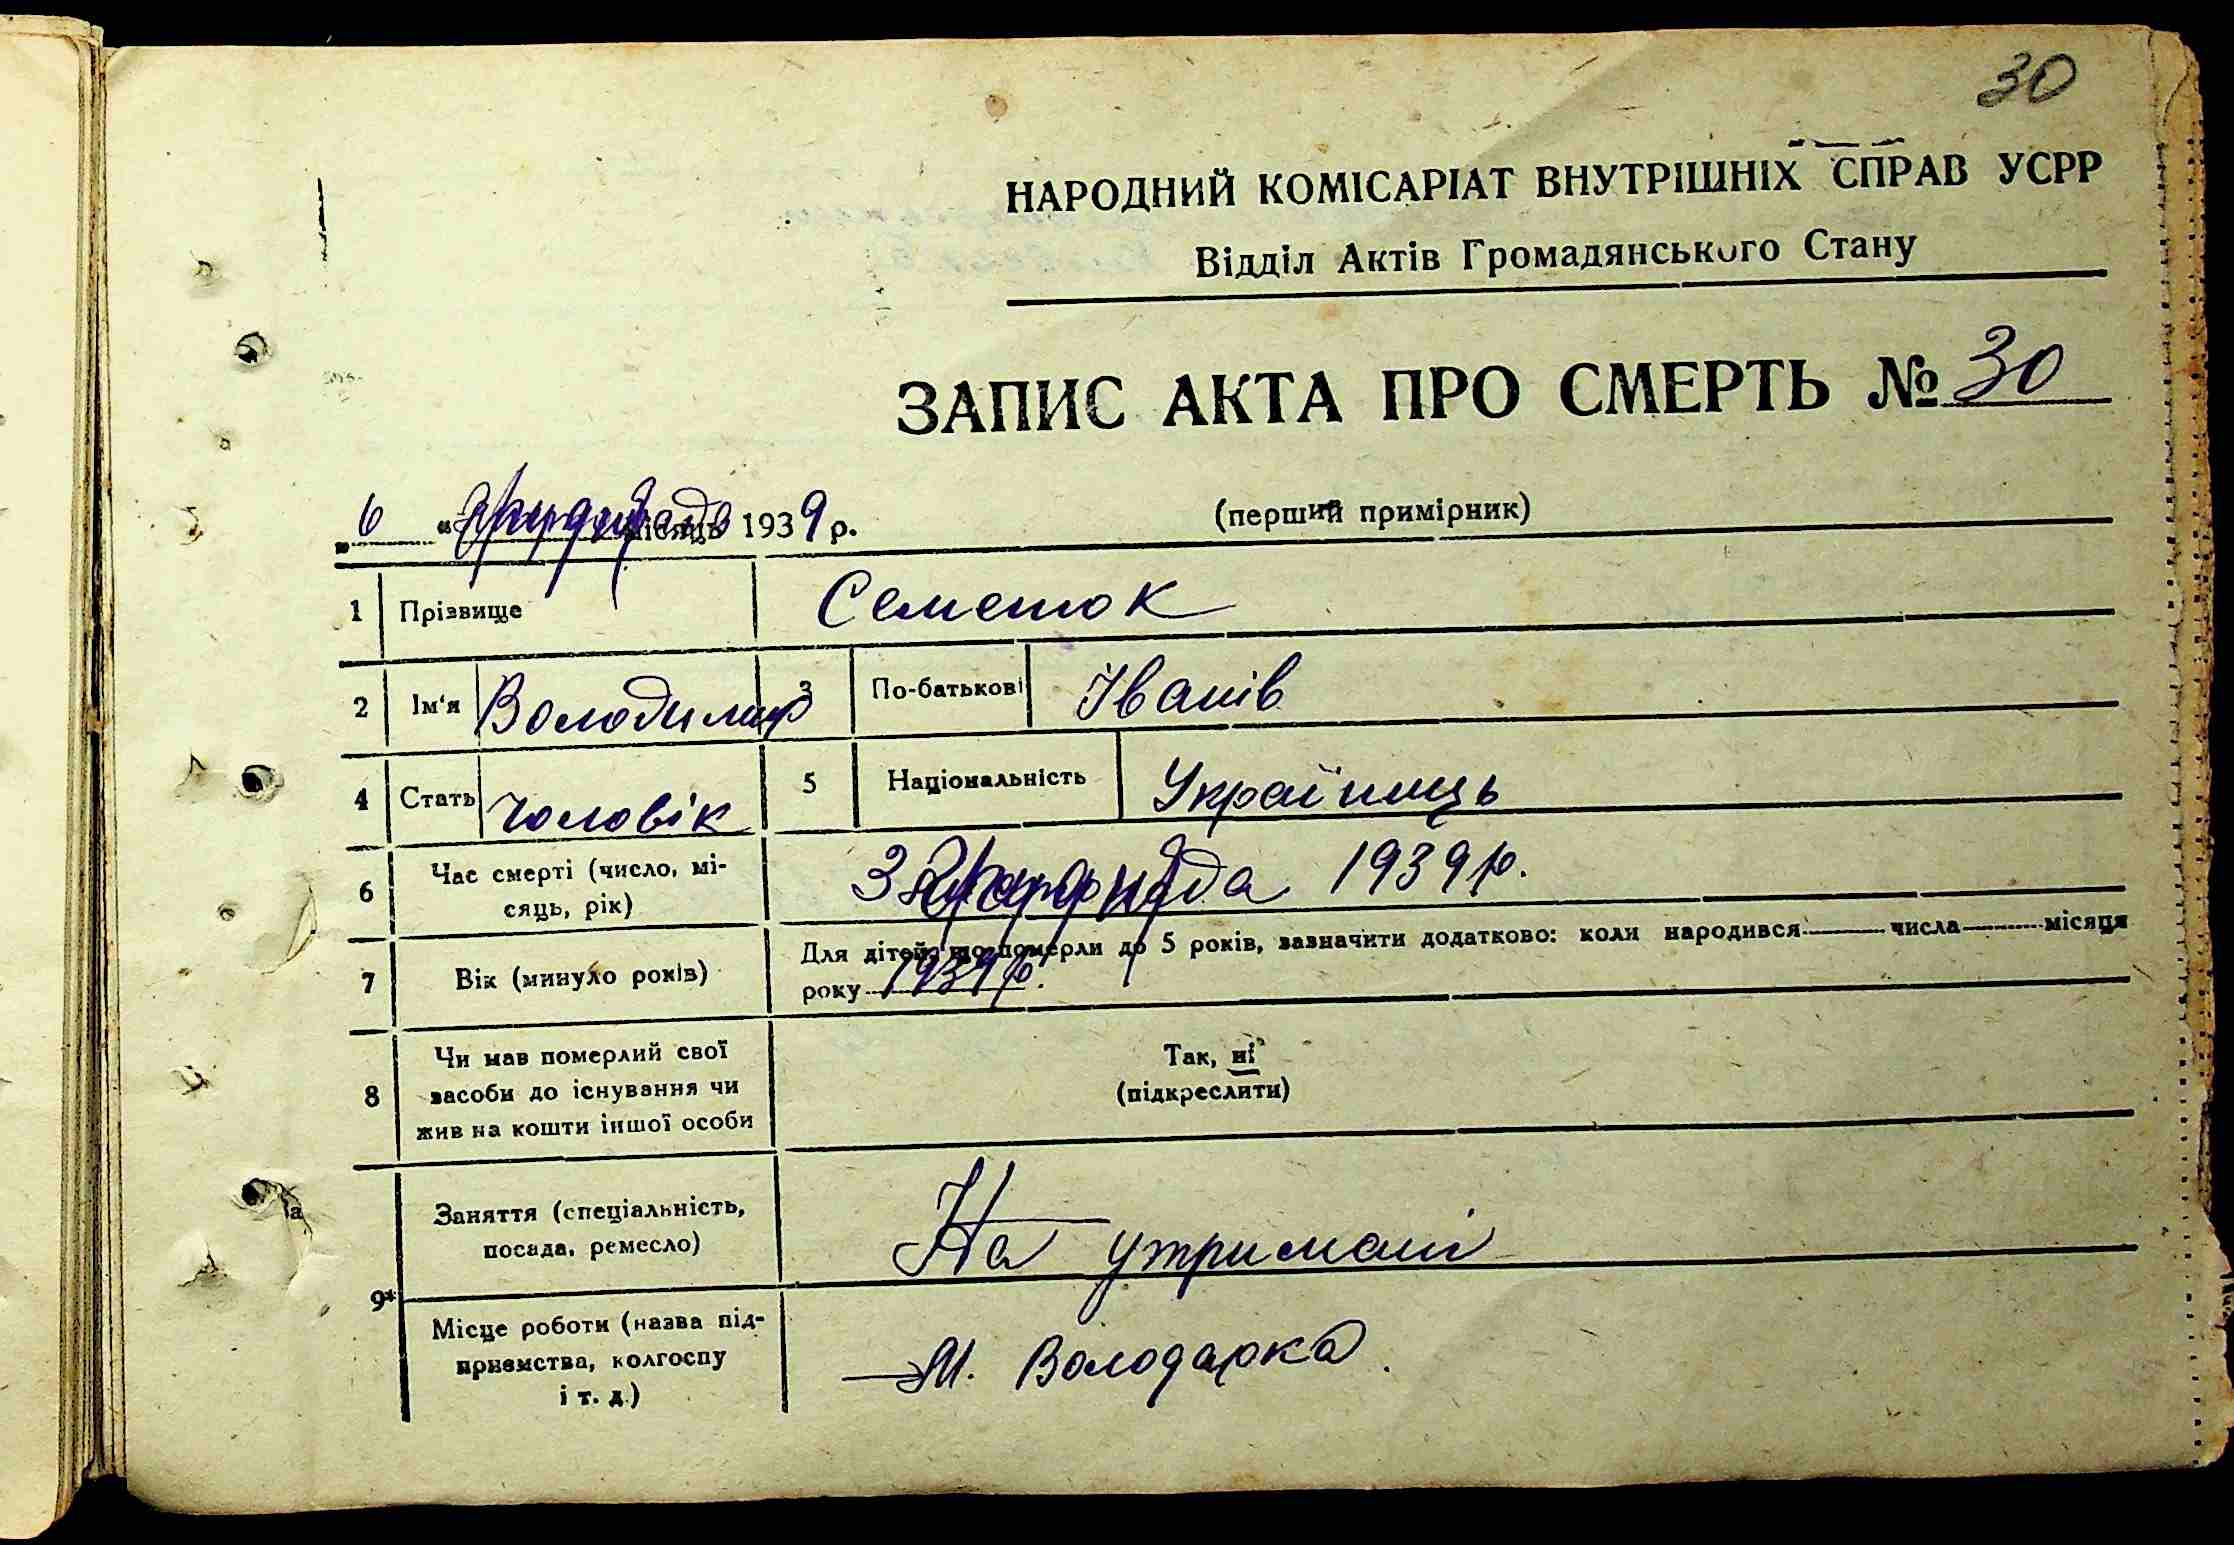 30
НАРОДНИЙ КОМІСАРІАТ ВНУТРІШНІХ СПРАВ УСРР
Відділ Актів Громадянського Стану
ЗАПИС АКТА ПРО СМЕРТЬ № 30
(перший примірник)
„6“ місяць 1939 р.
1 Прізвище Семенюк
2 Ім'я Володимир 3 По-батькові Іванів
4 Стать Чоловік 5 Національність Українець
6 Час смерті (число, мі-
сяць, рік) 3 1939 р.
7 Вік (минуло років) Для дітей, що померли до 5 років, зазначити додатково: коли народився числа місяця
року 1939 р.
8 Чи мав померлий свої
засоби до існування чи
жив на кошти іншої особи
Так, ні
(підкреслити)
9* Заняття (спеціальність,
посада, ремесло) На утримані
Місце роботи (назва під-
приємства, колгоспу
і т. д.) М. Володарка